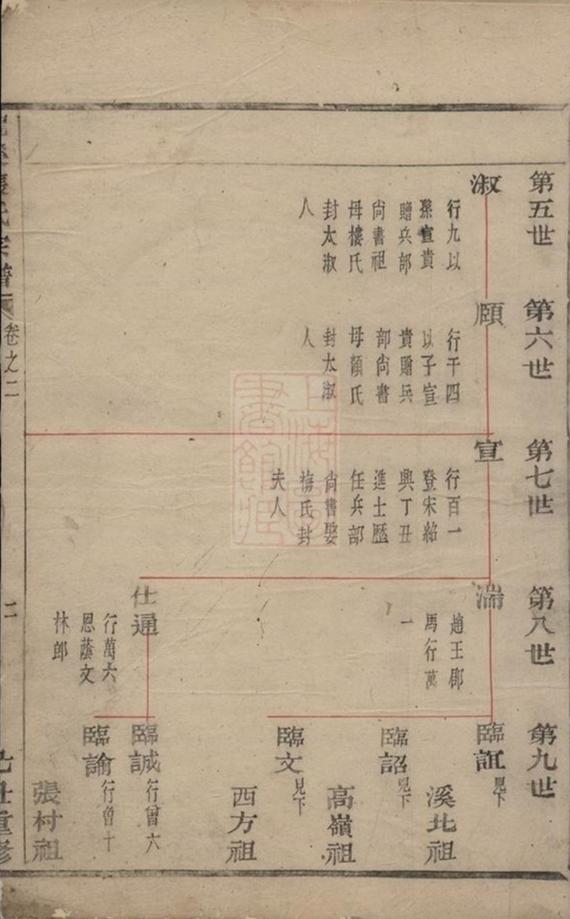 第五世
淑
行九以
孫宣貴
贈兵部
尚書祖
母樓氏
封太淑
人
第六世
頤
行千四
以子宣
貴贈兵
部尚書
母顏氏
封太淑
人
第七世
宣
行百一
登宋紹
興丁丑
進士歷
任兵部
尚書娶
梅氏封
夫人
第八世
湍
趙王郡
馬行萬
一
仕通
行萬六
恩蔭文
林郎
第九世
臨誼見下
溪北祖
臨詔見下
高嶺祖
臨文見下
西方祖
臨誠行曾六
臨諭行曾十
張村祖
張氏宗譜
卷之二
二
重修